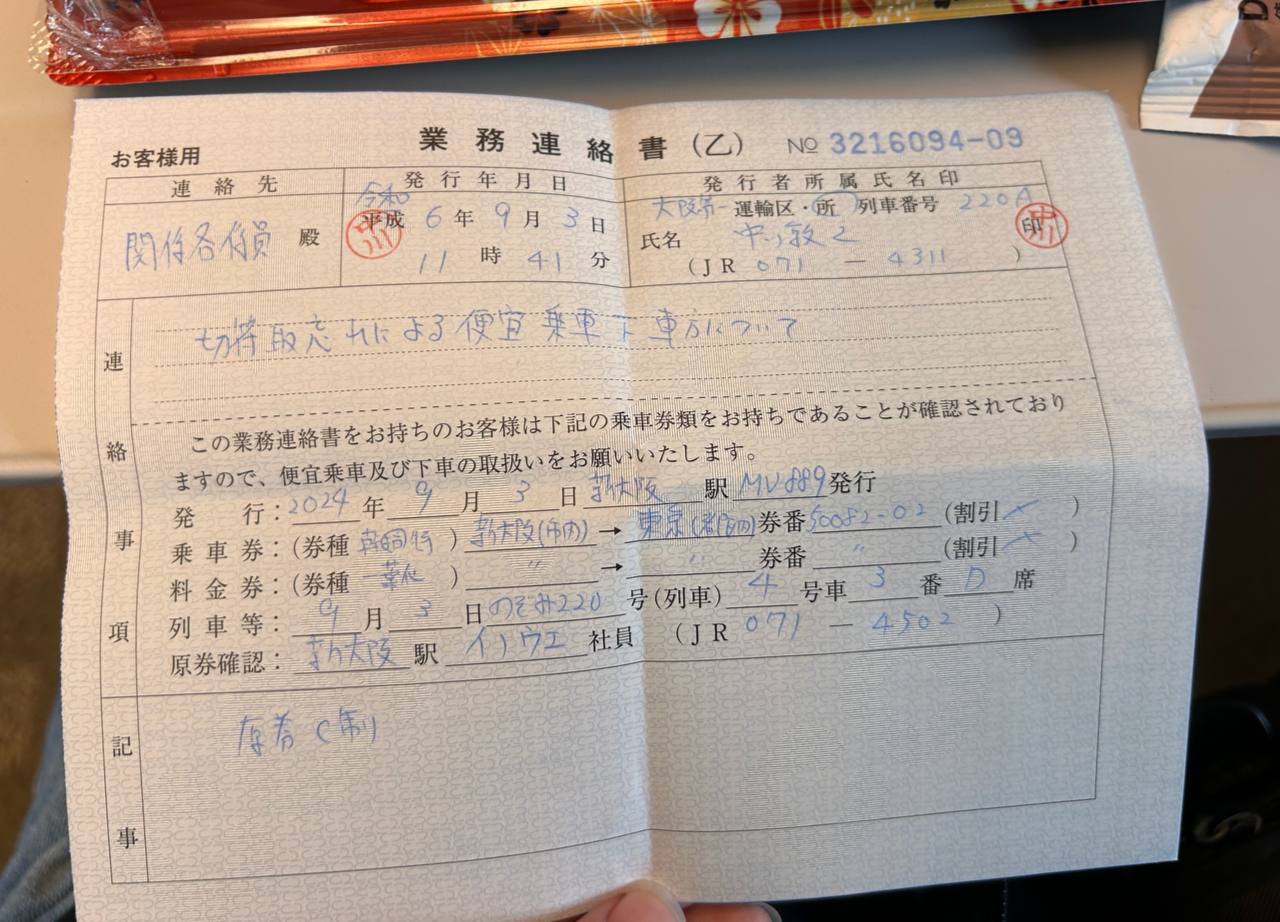 お客様用 業務連絡書（乙） № 3216094-09
連絡先 発行年月日 発行者所属氏名印
関係各係員 殿
令和
平成 6年 9月 3日
11時 41分
大阪第一 運輸区・所 列車番号 220A
氏名 印
（JR 071 － 4311 ）
中川
中川
連絡事項
切符取忘れによる便宜乗車下車方について
この業務連絡書をお持ちのお客様は下記の乗車券類をお持ちであることが確認されており
ますので、便宜乗車及び下車の取扱いをお願いいたします。
発 行：2024年 9月 3日 新大阪 駅 MV889 発行
乗車券：（券種 ） 新大阪(市内) → 東京 券番 50082-02 （割引 ）
料金券：（券種 ） 〃 → 〃 券番 〃 （割引 ）
列車等： 9月 3日 のぞみ220 号（列車） 4号車 3番 D席
原券確認： 新大阪 駅 イノウエ 社員 （JR 071 － 4502 ）
記事